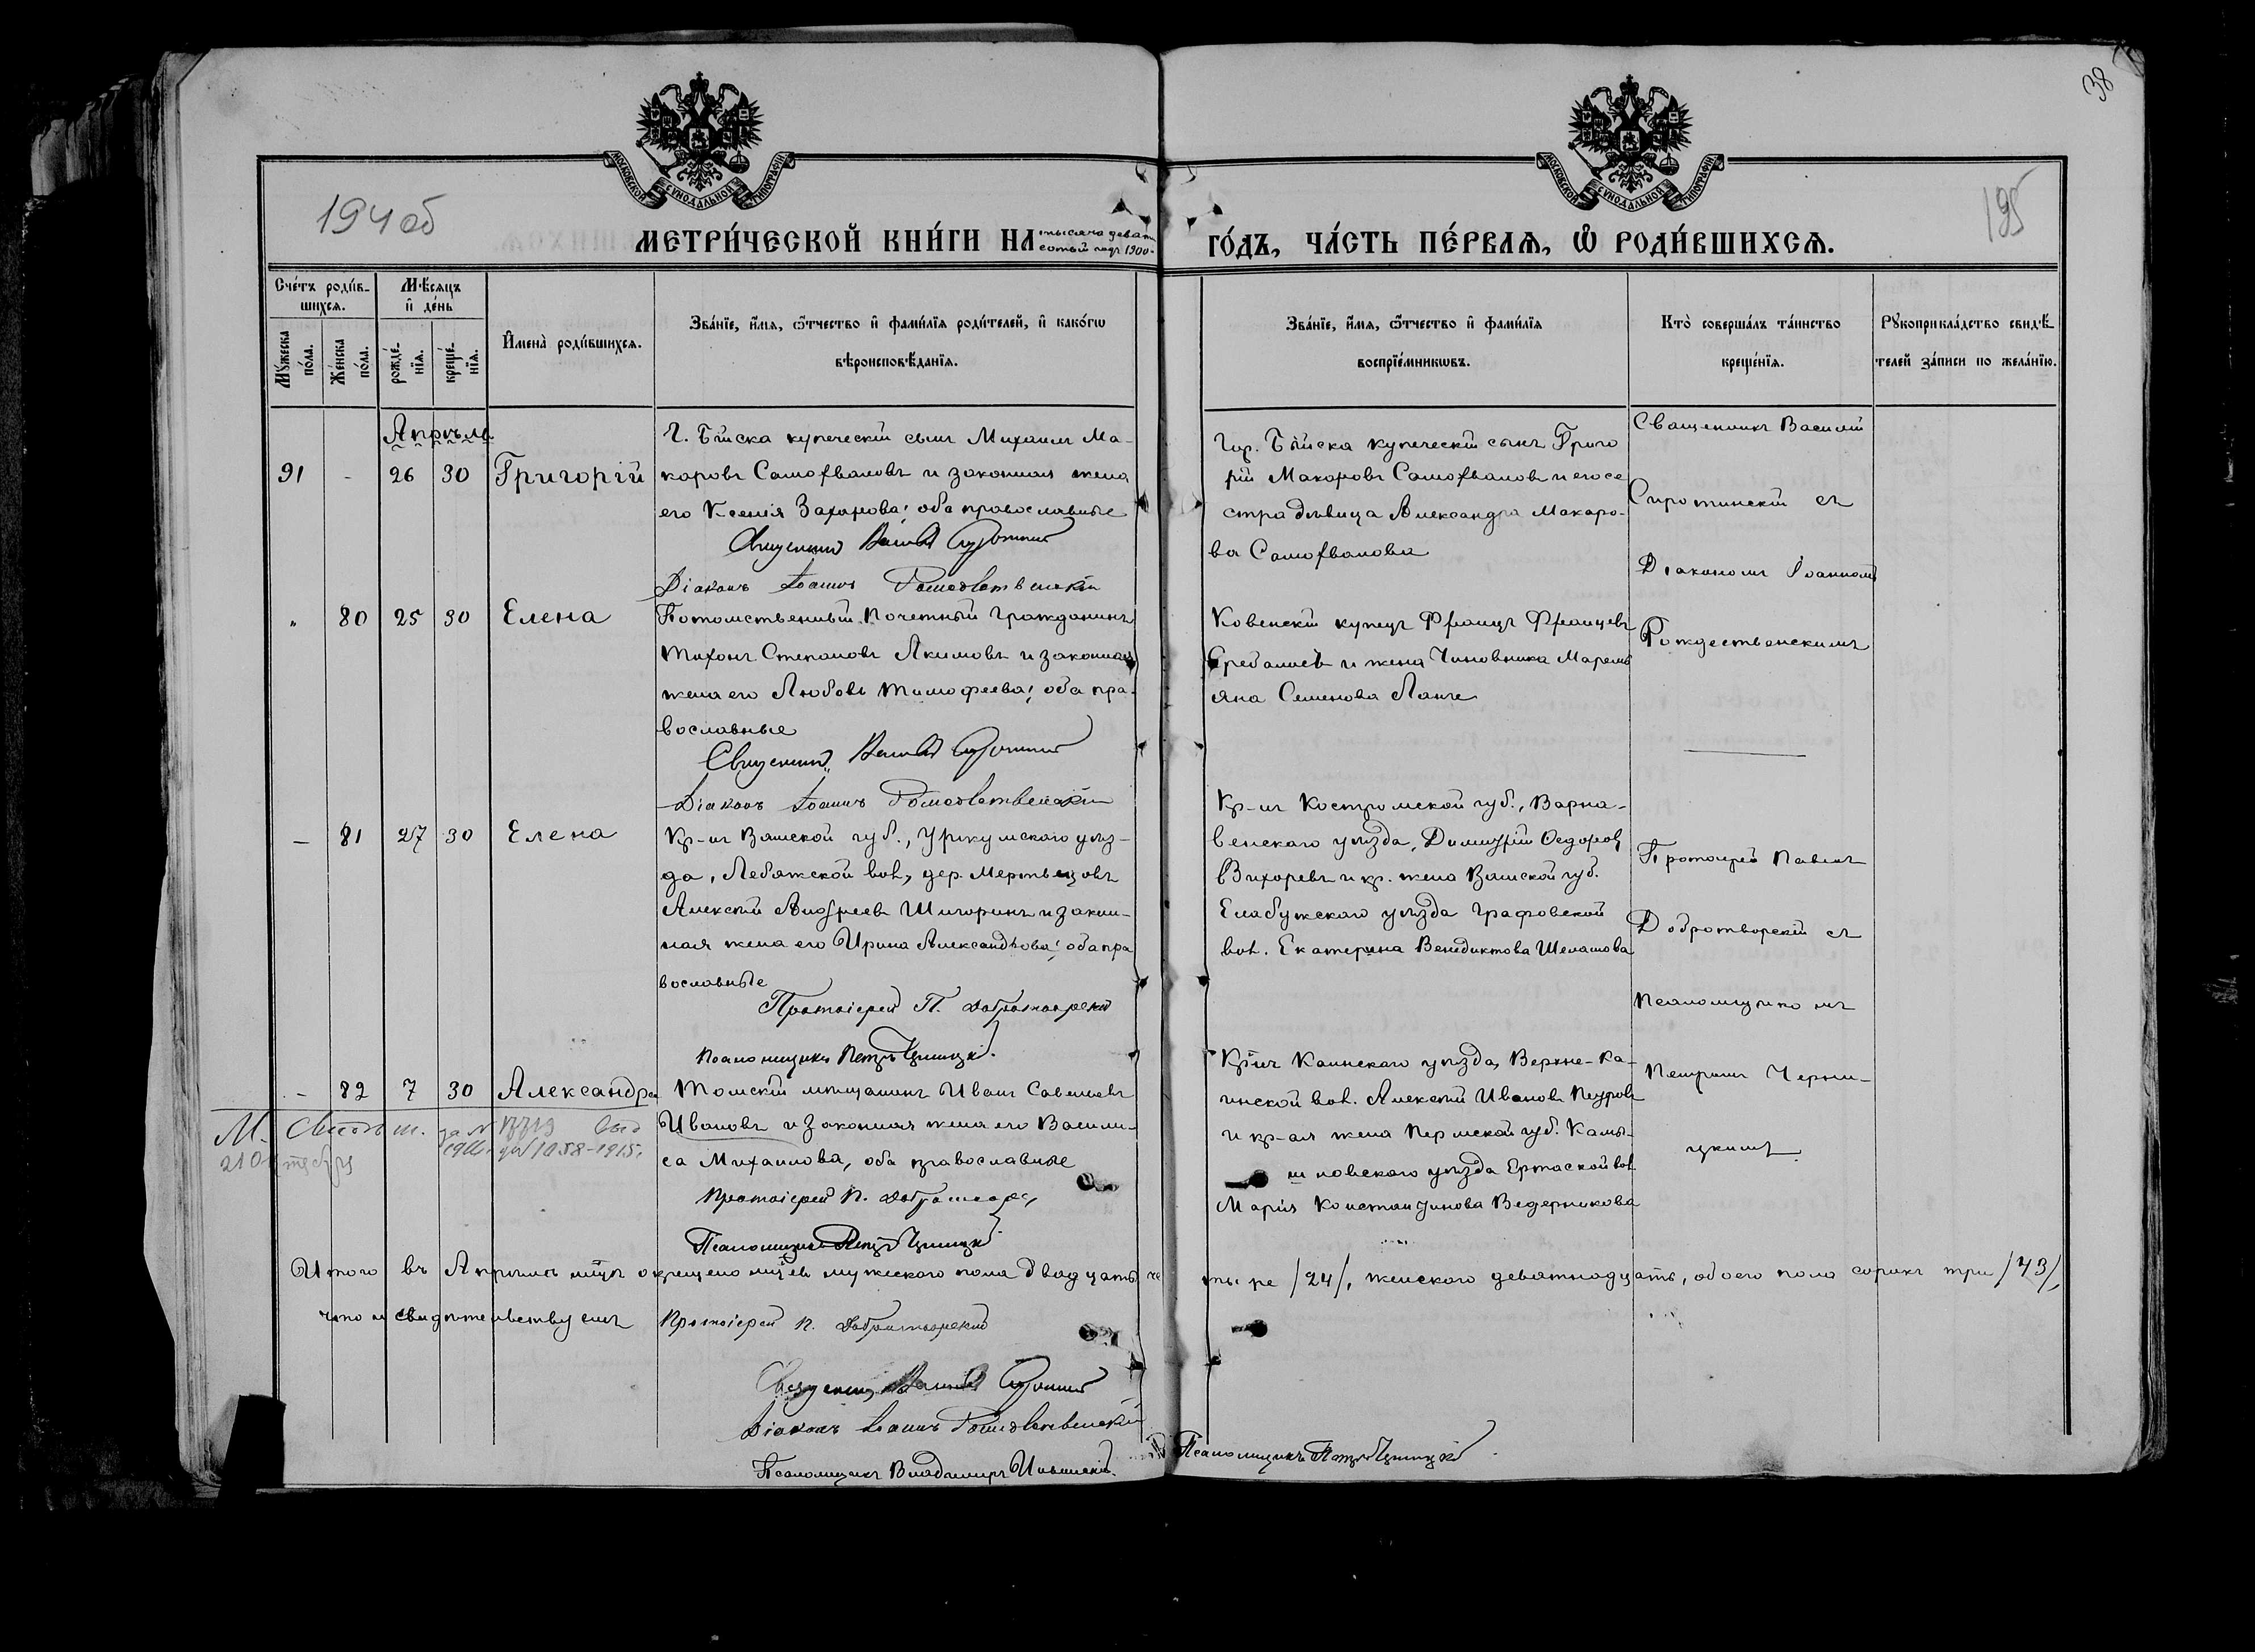 38
194 об
195
МОСКОВСКОЙ СѴНОДАЛЬНОЙ ТИПОГРАФІИ
МОСКОВСКОЙ СѴНОДАЛЬНОЙ ТИПОГРАФІИ
МЕТРИ́ЧЕСКОЙ КНИ́ГИ НА тысяча девят
сотый годъ 1900
ГО́ДЪ, ЧА́СТЬ ПЕ́РВАѦ, Ѿ РОДИ́ВШИХСѦ.
Сче́тъ роди́в-
шихсѧ.
Мꙋ́жеска по́ла.
Же́нска по́ла.
Мѣ́сѧцъ
и҆ де́нь
рожде́-нїѧ.
креще́-нїѧ.
И҆мена̀ роди́вшихсѧ.
Зва́нїе, и҆́мѧ, ѻ҆́тчество и҆ фами́лїѧ роди́телей, и҆ како́гѡ
вѣроисповѣ́данїѧ.
Зва́нїе, и҆́мѧ, ѻ҆́тчество и҆ фами́лїѧ
воспрїе́мникѡвъ.
Кто̀ соверша́лъ та́инство
креще́нїѧ.
Рꙋкоприкла́дство свидѣ́-
телей за́писи по жела́нїю.
Апрѣль
91 - 26 30 Григорій
Г. Бійска купеческій сынъ Михаилъ Ма-
каровъ Самохваловъ и законная жена
его Ксенія Захарова; оба православные
Священникъ Василій Сиротинскій
Діаконъ Іоаннъ Рождественскій
Гор. Бійска купеческій сынъ Григо
рій Макаровъ Самохваловъ и его се
стра дѣвица Александра Макаро-
ва Самохвалова
Священникъ Василій
Сиротинскій съ
Діакономъ Іоанномъ
Рождественскимъ
" 80 25 30 Елена
Потомственный Почетный Гражданинъ
Тихонъ Степановъ Акимовъ и законная
жена его Любовь Тимофеева; оба пра-
вославные
Священникъ Василій Сиротинскій
Діаконъ Іоаннъ Рождественскій
Ковенскій купецъ Францъ Францевъ
и жена Чиновника
Семенова Ланге
- 81 27 30 Елена
Кр-нъ Вятской губ., Уржумскаго уѣз-
да, Лебяжской вол., дер. Мертвецовъ
Алексѣй Андреевъ Шигоринъ и закон-
ная жена его Ирина Александрова; оба пра
вославные
Протоіерей П. Добротворскій
Псаломщикъ Петръ Черницкій.
Кр-нъ Костромской губ., Варна-
венскаго уѣзда, Димитрій Ѳедоровъ
Вихоревъ и кр. жена Вятской губ.
Елабужскаго уѣзда Графовской
вол. Екатерина Венедиктова Шелашова
Протоіерей Павелъ
Добротворскій съ
Псаломщикомъ
Петромъ Черни-
цкимъ
- 82 7 30 Александра
Томскій мѣщанинъ Иванъ Савельевъ
Ивановъ и законная жена его Васили-
са Михаилова, оба православные
Протоіерей П. Добротворскій
Псаломщикъ Петръ Черницкій
Кр-нъ Каинскаго уѣзда, Верхне-Ка-
инской вол. Алексѣй Ивановъ Петровъ
и кр-ая жена Пермской губ. Камы-
шловскаго уѣзда вол.
Марія Константинова Ведерникова
М.
21 Октября
1058-1915.
Итого въ Апрѣлѣ мѣсяцѣ окрещено мл-цевъ мужескаго пола двадцать че тыре /24/, женскаго девятнадцать, обоего пола сорокъ три /43/,
что и свидѣтельствуемъ Протоіерей П. Добротворскій
Священникъ Василій Сиротинскій
Діаконъ Іоаннъ Рождественскій
Псаломщикъ Владимиръ Ильинскій.
Псаломщикъ Петръ Черницкій.